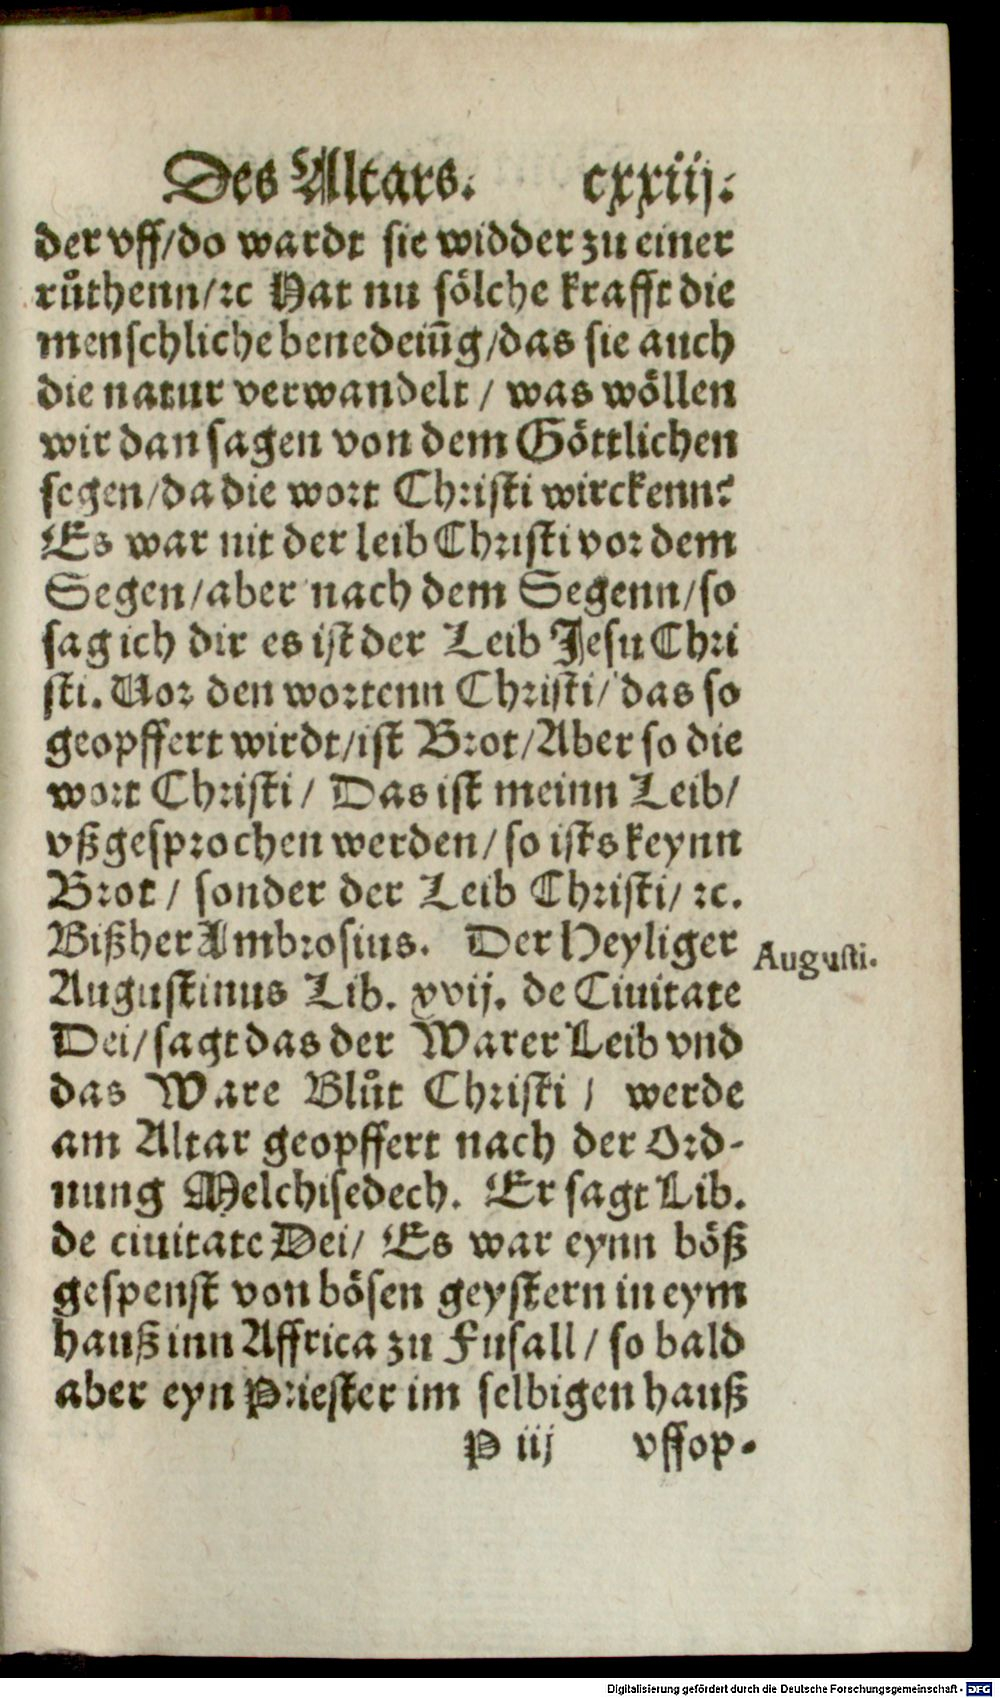 Des Altars. cxxiij.
der vff/do wardt sie widder zu einer
růthenn/ꝛc Hat nu sölche krafft die
menschliche benedeiūg/das sie auch
die natur verwandelt / was wöllen
wir dan sagen von dem Göttlichen
segen/da die wort Christi wirckenn?
Es war nit der leib Christi vor dem
Segen/aber nach dem Segenn/so
sag ich dir es ist der Leib Jesu Chri
sti. Vor den wortenn Christi/ das so
geopffert wirdt/ist Brot/Aber so die
wort Christi / Das ist meinn Leib/
vßgesprochen werden/ so ists keynn
Brot / sonder der Leib Christi/ ꝛc.
Bißher Ambrosius. Der Heyliger
Augusti.
Augustinus Lib. xvij. de Ciuitate
Dei/sagt das der Warer Leib vnd
das Ware Blůt Christi / werde
am Altar geopffert nach der Ord-
nung Melchisedech. Er sagt Lib.
de ciuitate Dei/ Es war eynn böß
gespenst von bösen geystern in eym
hauß inn Affrica zu Fusall / so bald
aber eyn Priester im selbigen hauß
P iij vffop-
Digitalisierung gefördert durch die Deutsche Forschungsgemeinschaft - DFG